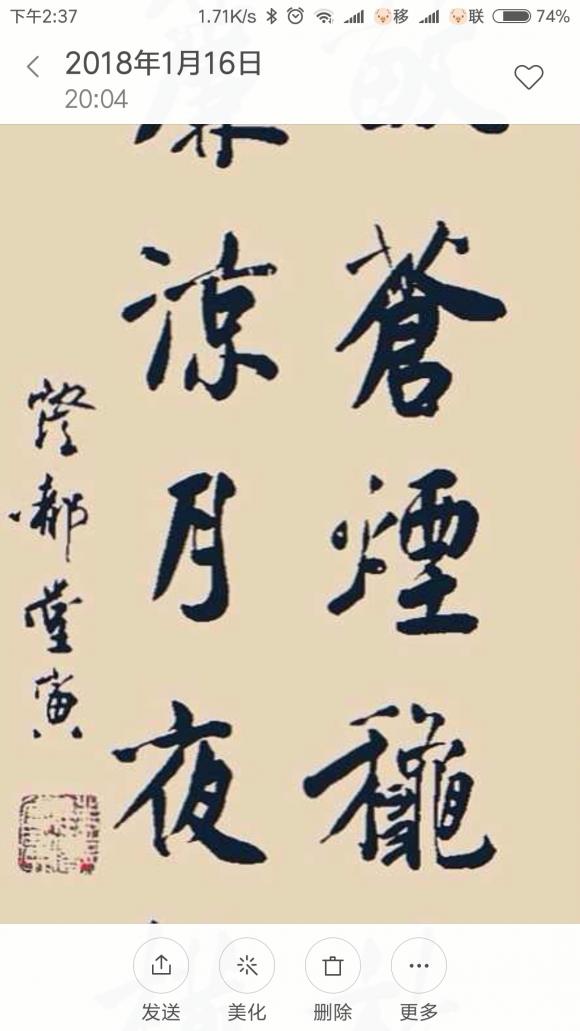 下午2:37 1.71K/s 移 联 74%
2018年1月16日
20:04
蒼煙穐
涼月夜
堂寅
发送 美化 删除 更多